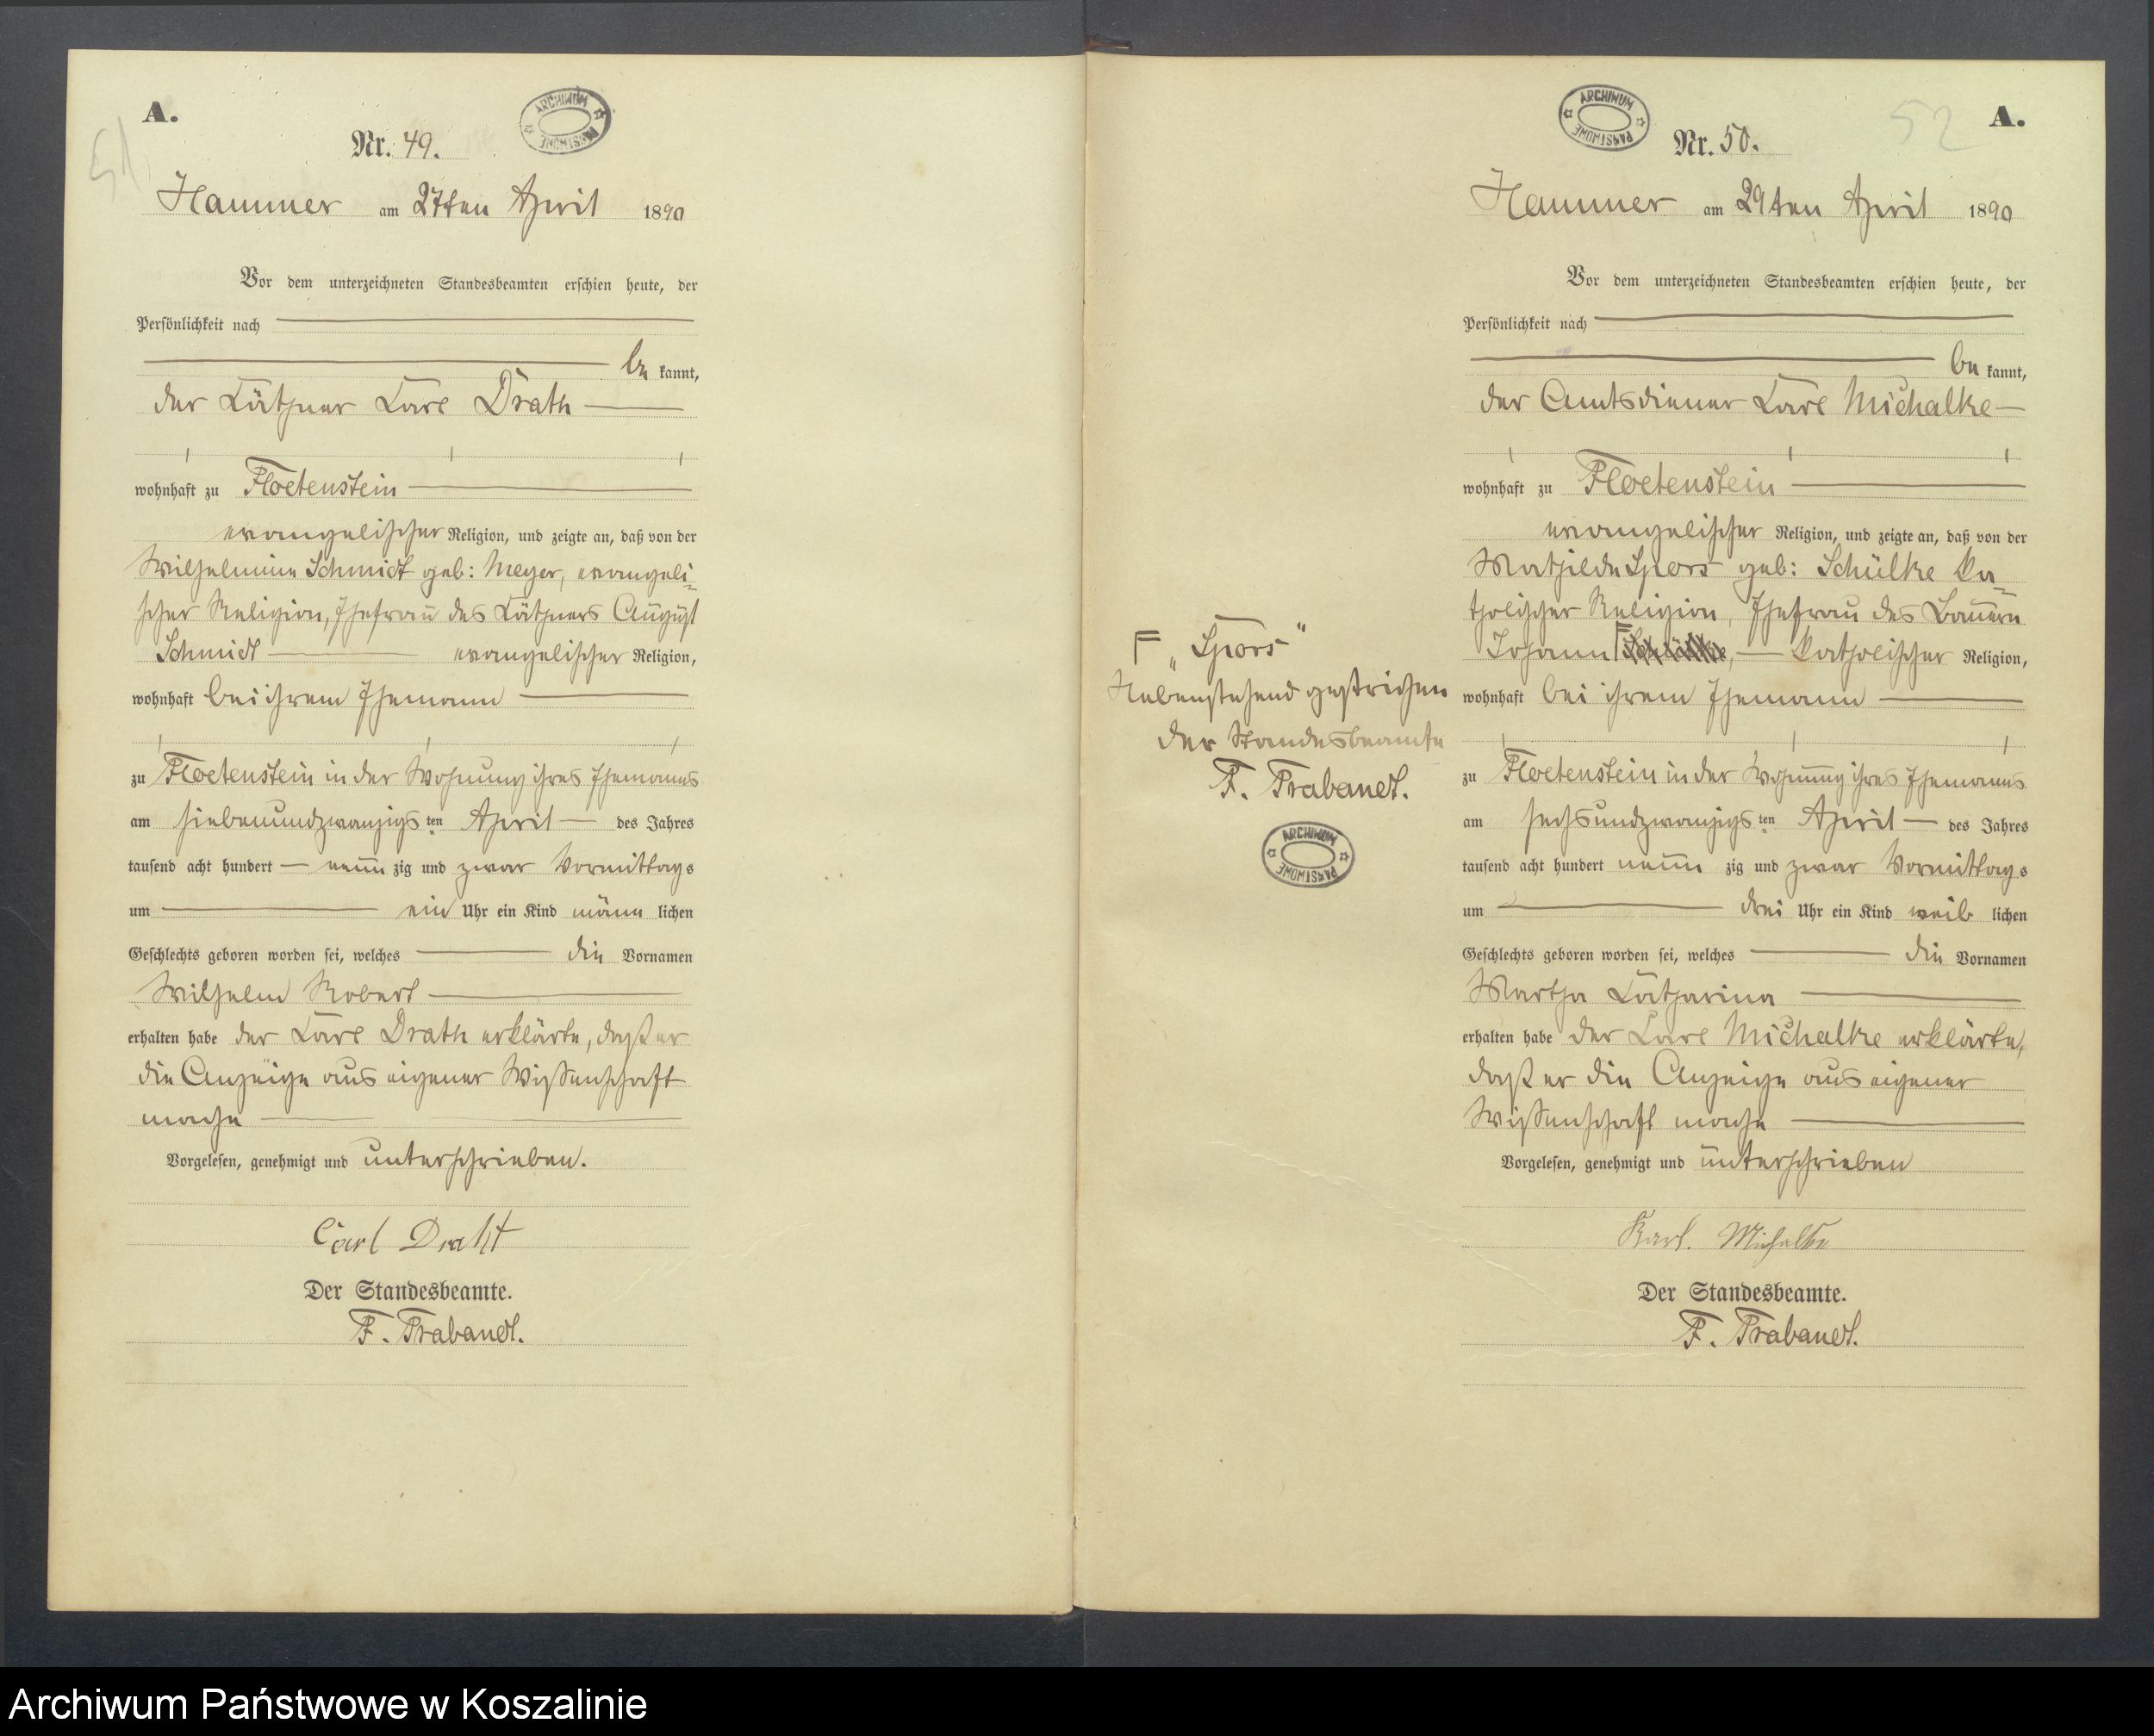 A.
51
ARCHIWUM PAŃSTWOWE
Nr. 49.
Hammer am 27ten April 1890
Vor dem unterzeichneten Standesbeamten erschien heute, der
Persönlichkeit nach
be kannt,
der Käthner Carl Drath
wohnhaft zu Floetenstein
evangelischer Religion, und zeigte an, daß von der
Wilhelmine Schmidt geb: Meyer, evangeli-
scher Religion, Ehefrau des Käthners August
Schmidt evangelischer Religion,
wohnhaft bei ihrem Ehemann
zu Floetenstein in der Wohnung ihres Ehemanns
am siebenundzwanzigs ten April des Jahres
tausend acht hundert neun zig und zwar Vormittags
um ein Uhr ein Kind männ lichen
Geschlechts geboren worden sei, welches die Vornamen
Wilhelm Robert
erhalten habe der Carl Drath erklärte, daß er
die Anzeige aus eigener Wissenschaft
mache
Vorgelesen, genehmigt und unterschrieben.
Carl Draht
Der Standesbeamte.
F. Trabandt.
A.
52
ARCHIWUM PAŃSTWOWE
Nr. 50.
Hammer am 29ten April 1890
Vor dem unterzeichneten Standesbeamten erschien heute, der
Persönlichkeit nach
be kannt,
der Amtsdiener Carl Michalke
wohnhaft zu Floetenstein
evangelischer Religion, und zeigte an, daß von der
Mathilde Spors geb: Schülke ka-
tholischer Religion, Ehefrau des Bauern
Johann katholischer Religion,
wohnhaft bei ihrem Ehemann
zu Floetenstein in der Wohnung ihres Ehemanns
am sechsundzwanzigs ten April des Jahres
tausend acht hundert neun zig und zwar Vormittags
um drei Uhr ein Kind weib lichen
Geschlechts geboren worden sei, welches die Vornamen
Martha Catharina
erhalten habe der Carl Michalke erklärte,
daß er die Anzeige aus eigener
Wissenschaft mache
Vorgelesen, genehmigt und unterschrieben
Karl. Michalke
Der Standesbeamte.
F. Trabandt.
F „Spors"
Nebenstehend gestrichen
der Standesbeamte
F. Trabandt.
ARCHIWUM PAŃSTWOWE
Archiwum Państwowe w Koszalinie